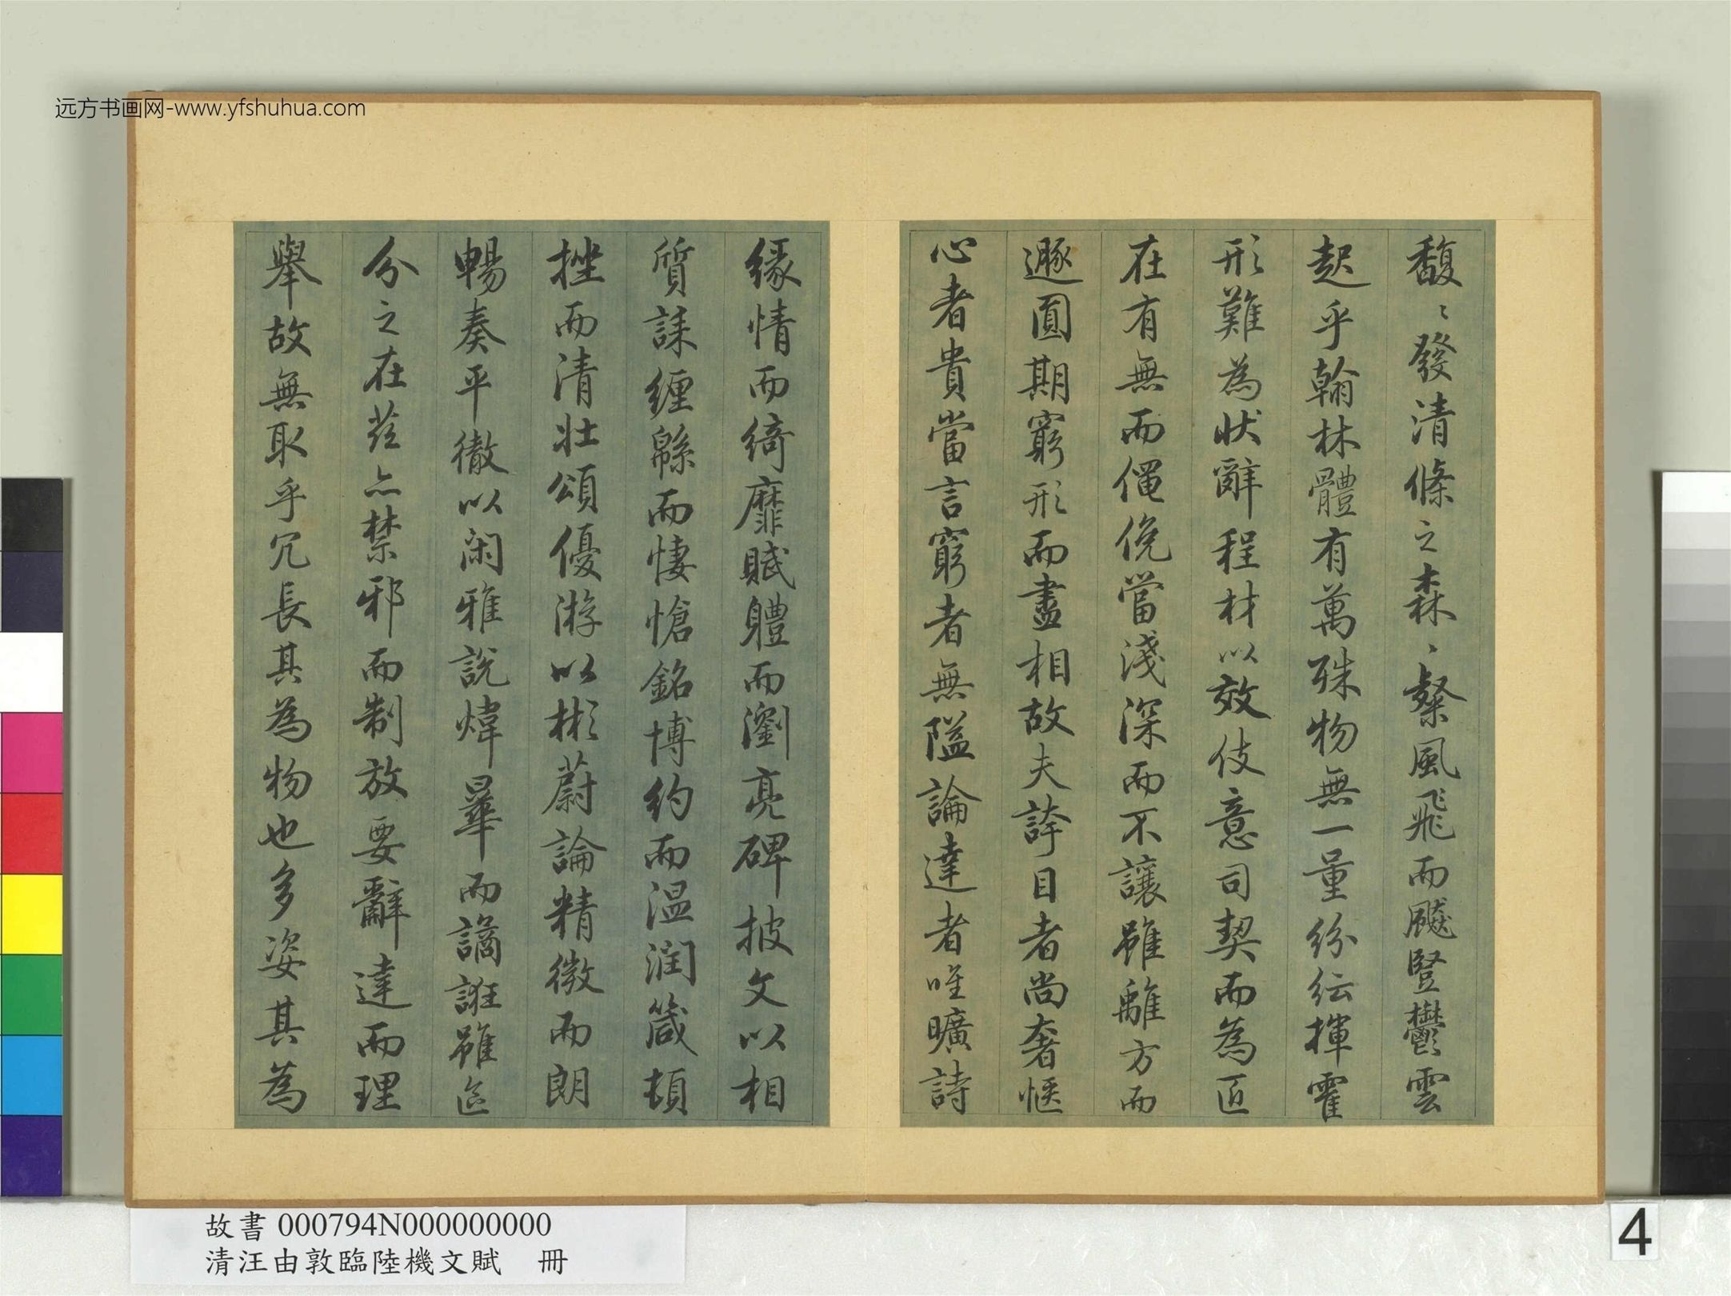 远方书画网-www.yfshuhua.com
馥〻發清條之森〻粲風飛而飈豎鬱雲
起乎翰林體有萬殊物無一量紛紜揮霍
形難為状辭程材以效伎意司契而為匠
在有無而僶俛當淺深而不讓雖離方而
遯圓期窮形而盡相故夫誇目者尚奢愜
心者貴當言窮者無隘論達者唯曠詩
緣情而綺靡賦軆而瀏亮碑披文以相
質誄纏緜而悽愴銘博約而温潤箴頓
挫而清壯頌優游以彬蔚論精微而朗
暢奏平徹以闲雅說煒曅而譎誑雖區
分之在茲亦禁邪而制放要辭達而理
舉故無取乎冗長其為物也多姿其為
故書 000794N000000000
清汪由敦臨陸機文賦　冊
4